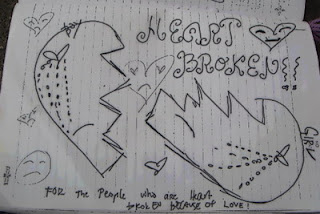 HEART
BROKEN!!
GIRL
FOR The People who are Heart
bROKEN because OF LOVE!